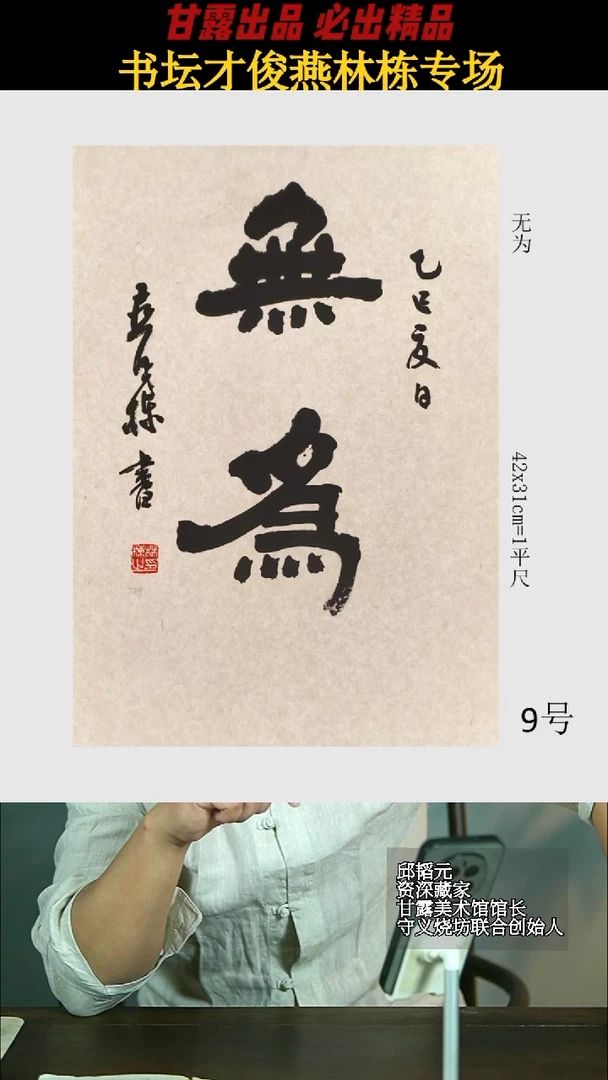 甘露出品 必出精品
书坛才俊燕林栋专场
無為
乙巳夏日
燕林栋書
无为
42x31cm=1平尺
9号
邱韬元
资深藏家
甘露美术馆馆长
守义烧坊联合创始人